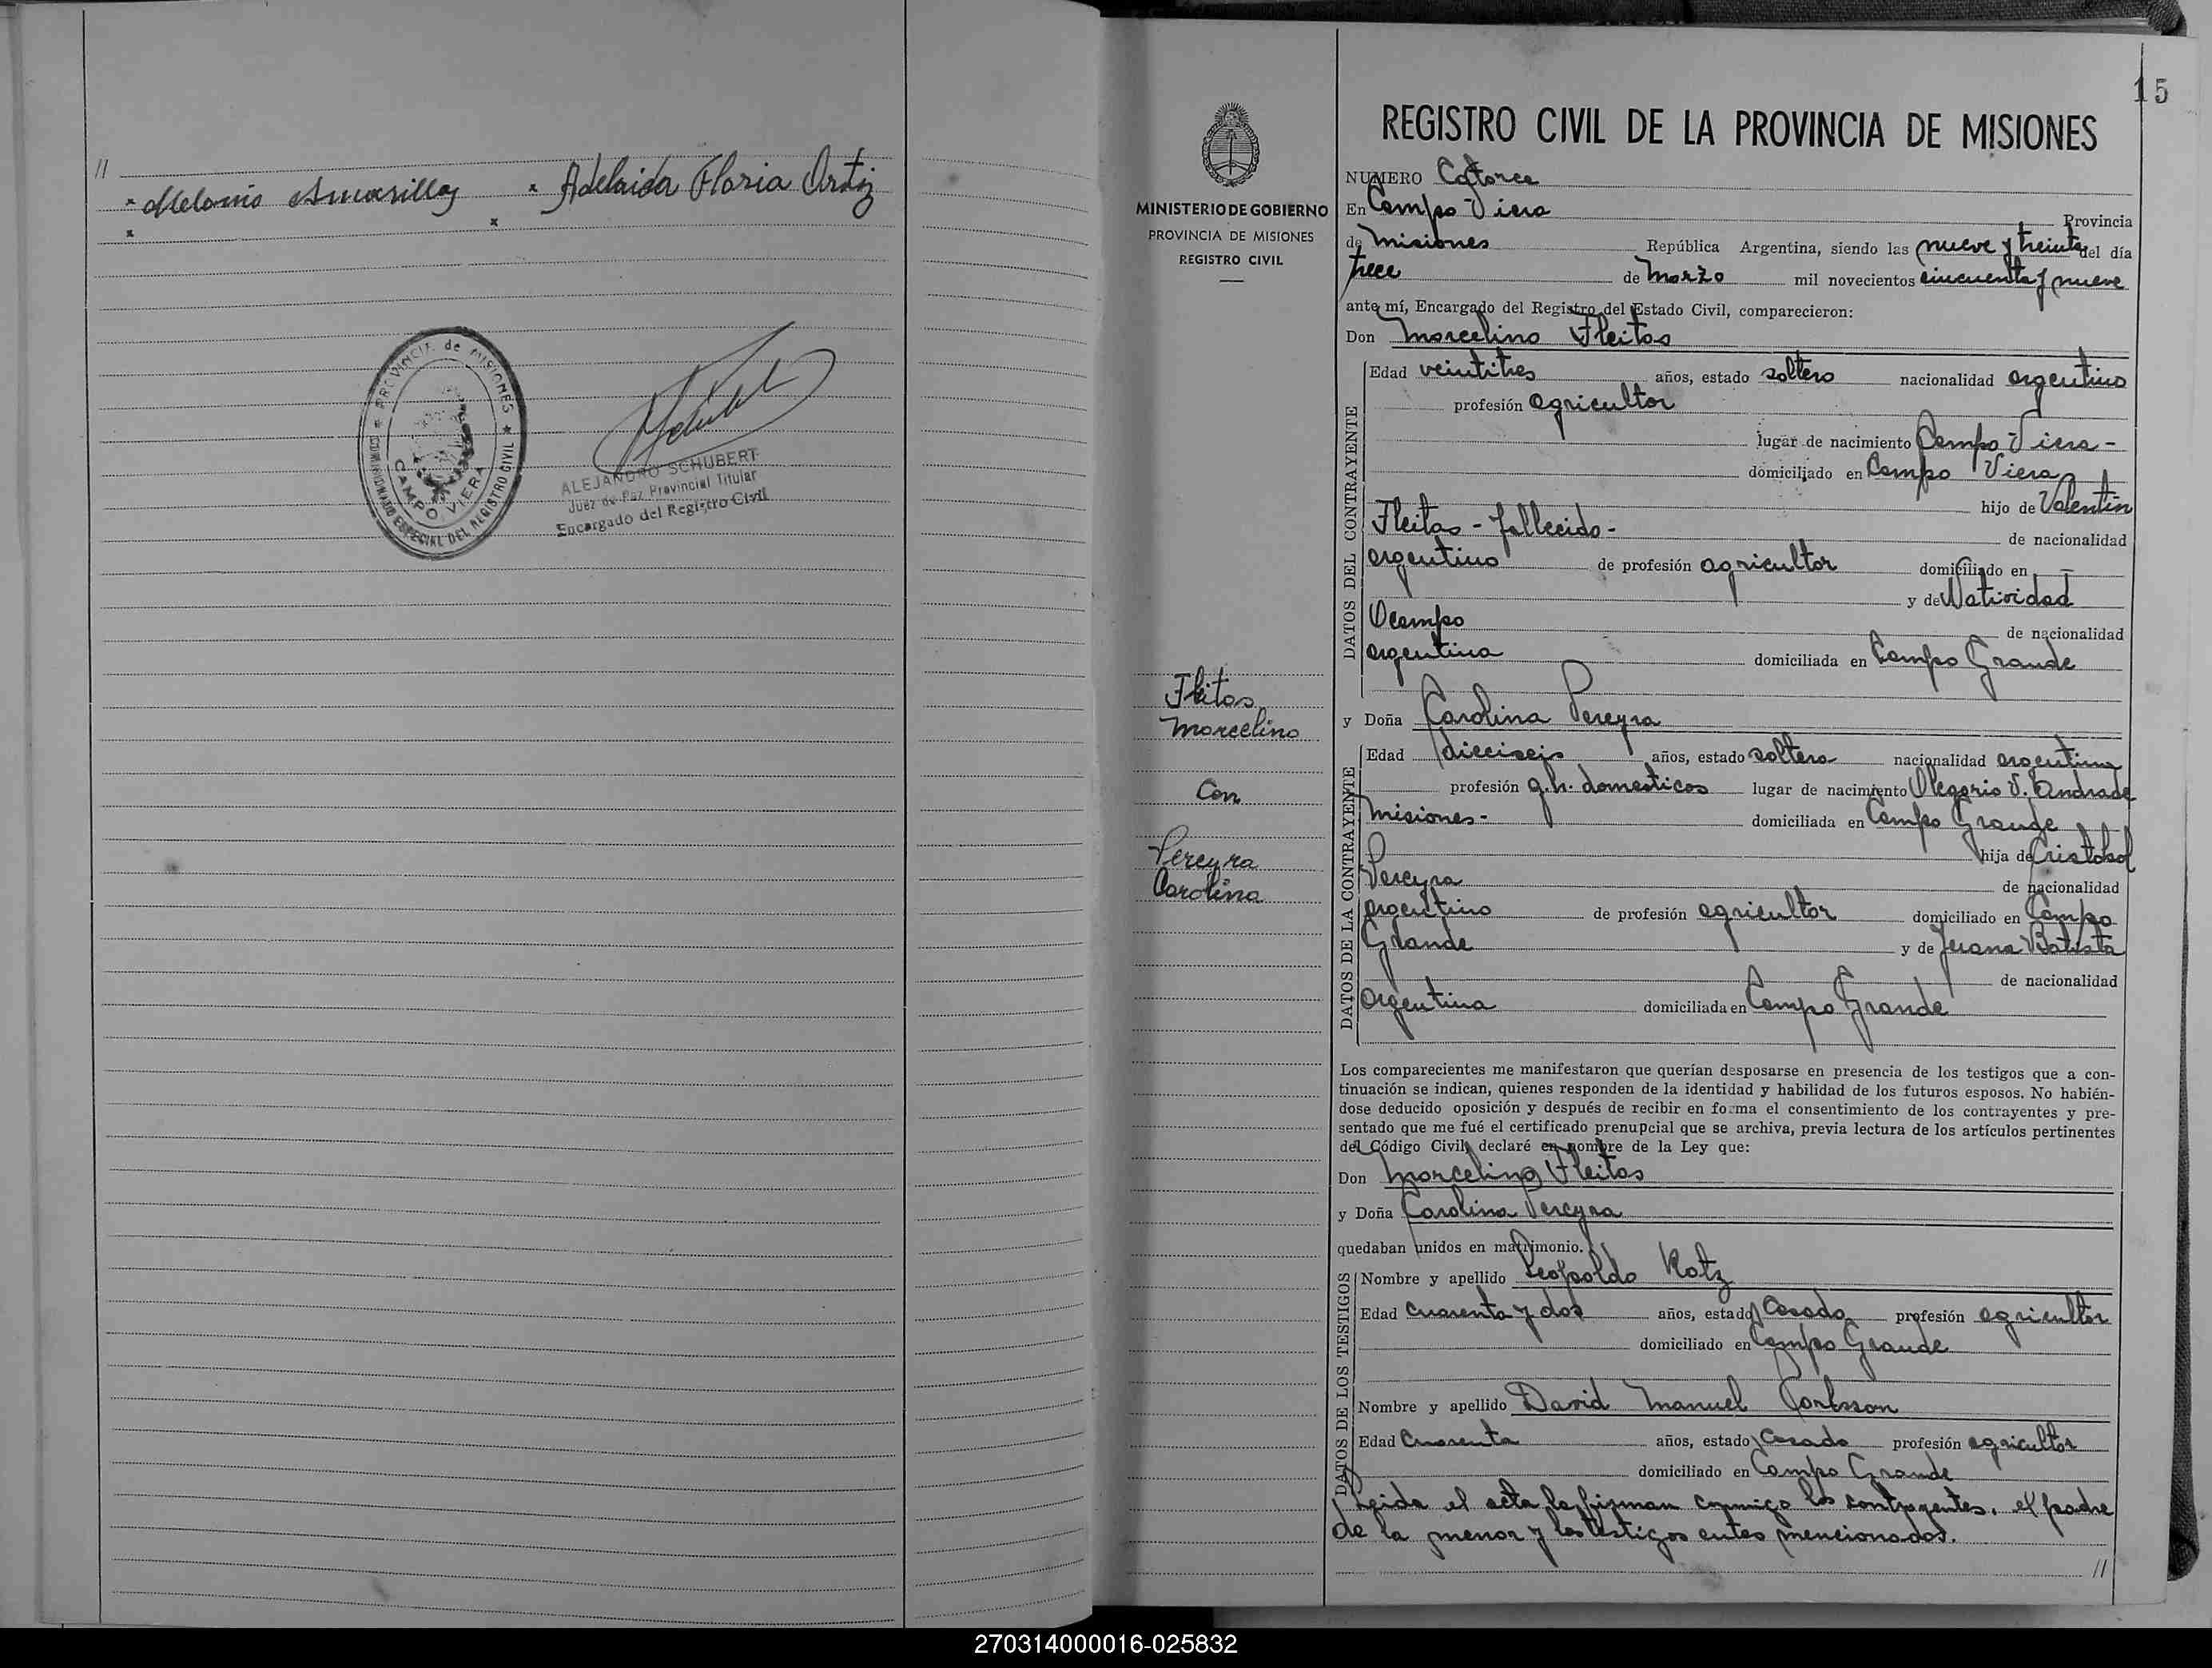 //
Melanio Amarilla x Adelaida Floria Ortiz
x x x
PROVINCIA de MISIONES
COMISIONADO ESPECIAL DEL REGISTRO CIVIL
CAMPO VIERA
ALEJANDRO SCHUBERT
Juez de Paz Provincial Titular
Encargado del Registro Civil
15
MINISTERIO DE GOBIERNO
PROVINCIA DE MISIONES
REGISTRO CIVIL
Fleitas
Marcelino
Con
Pereyra
Carolina
REGISTRO CIVIL DE LA PROVINCIA DE MISIONES
NUMERO Catorce
En Campo Viera Provincia
de Misiones República Argentina, siendo las nueve y treinta del día
trece de Marzo mil novecientos cincuenta y nueve
ante mí, Encargado del Registro del Estado Civil, comparecieron:
Don Marcelino Fleitas
DATOS DEL CONTRAYENTE
Edad veintitres años, estado soltero nacionalidad argentino
profesión agricultor
lugar de nacimiento Campo Viera -
domiciliado en Campo Viera
hijo de Valentin
Fleitas - fallecido - de nacionalidad
argentino de profesión agricultor domiciliado en —
y de Natividad
Ocampo de nacionalidad
argentina domiciliada en Campo Grande
y Doña Carolina Pereyra
DATOS DE LA CONTRAYENTE
Edad dieciseis años, estado soltera nacionalidad argentina
profesión q.h. domesticos lugar de nacimiento Olegario V. Andrade
Misiones - domiciliada en Campo Grande
hija de Cristobal
Pereyra de nacionalidad
argentino de profesión agricultor domiciliado en Campo
Grande y de Juana Batista
de nacionalidad
argentina domiciliada en Campo Grande
Los comparecientes me manifestaron que querían desposarse en presencia de los testigos que a con-
tinuación se indican, quienes responden de la identidad y habilidad de los futuros esposos. No habién-
dose deducido oposición y después de recibir en forma el consentimiento de los contrayentes y pre-
sentado que me fué el certificado prenupcial que se archiva, previa lectura de los artículos pertinentes
del Código Civil, declaré en nombre de la Ley que:
Don Marcelino Fleitas
y Doña Carolina Pereyra
quedaban unidos en matrimonio.
DATOS DE LOS TESTIGOS
Nombre y apellido Leopoldo Kotz
Edad cuarenta y dos años, estado Casado profesión agricultor
domiciliado en Campo Grande
Nombre y apellido David Manuel Carlsson
Edad Cuarenta años, estado Casado profesión agricultor
domiciliado en Campo Grande
Leida el acta la firman conmigo los contrayentes, el padre
de la menor y los testigos antes mencionados.
//
270314000016-025832